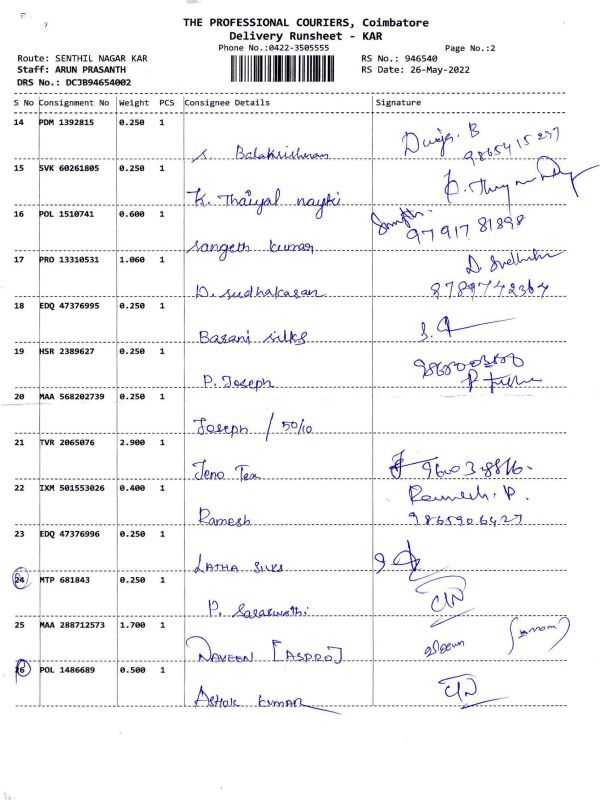 THE PROFESSIONAL COURIERS, Coimbatore
Delivery Runsheet - KAR
Phone No.:0422-3505555
Page No.:2
Route: SENTHIL NAGAR KAR
RS No.: 946540
Staff: ARUN PRASANTH
RS Date: 26-May-2022
DRS No.: DCJB94654002
S No Consignment No Weight PCS Consignee Details Signature
14 PDM 1392815 0.250 1
S. Balakrishnan
15 SVK 60261805 0.250 1
K. Thaiyal nayki
16 POL 1510741 0.600 1
97917 81898
Sangeth kumar
17 PRO 13310531 1.060 1
D. Sudhakaran
8789742364
18 EDQ 47376995 0.250 1
Basani silks
19 HSR 2389627 0.250 1
P. Joseph
20 MAA 568202739 0.250 1
Joseph / 50/10
21 TVR 2065076 2.900 1
Jeno Tex
22 IXM 501553026 0.400 1
Ramesh. P.
Ramesh 9865906427
23 EDQ 47376996 0.250 1
LATHA SILKS
24 MTP 681843 0.250 1
P. Saraswathi
25 MAA 288712573 1.700 1
NAVEEN [ASPRO]
26 POL 1486689 0.500 1
ASHOK KUMAR